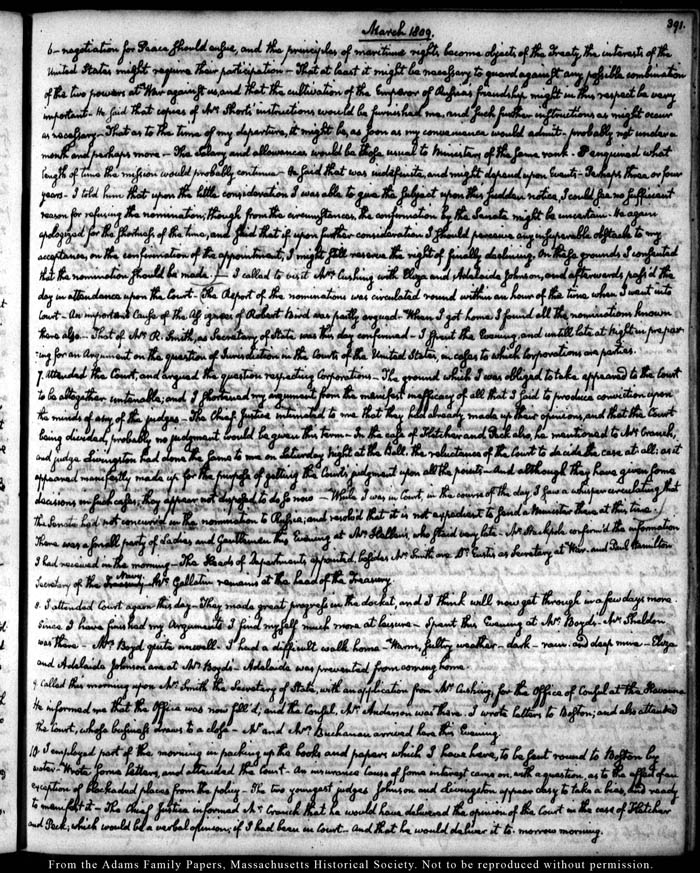 March 1809.
391.
6.- negotiation for Peace should ensue, and the principles of maritime rights, become objects of the Treaty, the interests of the
United States might require their participation - That at least it might be necessary to guard against any possible combination
of the two powers at War against us, and that the cultivation of the Emperor of Russia's friendship might in this respect be very
important - He said that copies of Mr Short's instructions would be furnished me, and such further instructions as might occur
as necessary - That as to the time of my departure, it might be, as soon as my convenience would admit - probably not under a
month and perhaps more - The Salary and allowances would be those usual to Ministers of the same rank - I enquired what
length of time the mission would probably continue - He said that was indefinite, and might depend upon Events - Perhaps three or four
years - I told him that upon the little consideration I was able to give the subject upon this sudden notice, I could see no sufficient
reason for refusing the nomination; though from the circumstances, the confirmation by the Senate might be uncertain - He again
apologized for the shortness of the time, and said that if upon further consideration I should perceive any insuperable obstacle to my
acceptance, on the confirmation of the appointment, I might still reserve the right of finally declining. On these grounds I consented
that the nomination should be made. - I called to visit Mrs Cushing with Eliza and Adelaide Johnson, and afterwards pass'd the
day in attendance upon the Court - The Report of the nominations was circulated round within an hour of the time when I went into
Court - An important Cause of the Assignees of Robert Bird was partly argued - When I got home I found all the nominations known
there also - That of Mr R. Smith, as Secretary of State was this day confirmed - I spent the Evening, and until late at Night in prepar-
-ing for an Argument on the question of Jurisdiction in the Courts of the United States, in cases to which Corporations are parties.
7. Attended the Court, and argued the question respecting Corporations - The ground which I was obliged to take appeared to the Court
to be altogether untenable; and I shortened my argument from the manifest inefficacy of all that I said to produce conviction upon
the minds of any of the judges - The Chief Justice intimated to me that they had already made up their opinions, and that the Court
being divided, probably no judgment would be given this term - In the case of Fletcher and Peck also, he mentioned to Mr Cranch,
and judge Livingston had done the same to me on Saturday night at the Ball, the reluctance of the Court to decide the case at all; as it
appeared manifestly made up for the purpose of getting the Court's judgment upon all the points - And although they have given some
decisions in such cases; they appear not disposed to do so now - While I was in Court, in the course of the day, I saw a whisper circulating that
the Senate had not concurred in the nomination to Russia; and resolv'd that it is not expedient to send a Minister there at this time.
There was a small party of Ladies and Gentlemen this Evening at Mr Hellen's, who staid very late - Mr Stackpole confirm'd the information
I had received in the morning - The Heads of Departments appointed, besides Mr Smith are Dr Eustis as Secretary at War, and Paul Hamilton
Navy.
Secretary of the Treasury - Mr Gallatin remains at the head of the Treasury.
8. I attended Court again this day - They made great progress in the docket, and I think will now get through in a few days more.
Since I have finished my Arguments I find myself much more at leisure - Spent this Evening at Mrs Boyd's - Mr Sheldon
was there - Mrs Boyd quite unwell - I had a difficult walk home - Warm, sultry weather - dark - rain and deep mire - Eliza
and Adelaide Johnson are at Mrs Boyd's - Adelaide was prevented from coming home.
9. Called this morning upon Mr Smith the Secretary of State, with an application from Mr Cushing, for the Office of Consul at the Havanna
He informed me that the Office was now fill'd, and the Consul, Mr Anderson was there. I wrote letters to Boston; and also attended
the Court, whose business draws to a close - Mr and Mrs Buchanan arrived here this Evening.
10. I employed part of the morning in packing up the books and papers which I have here, to be sent round to Boston by
water - Wrote some letters, and attended the Court - An insurance Cause of some interest came on, with a question, as to the effect of an
exception of blockaded places from the policy - The two youngest judges Johnson and Livingston appear easy to take a bias, and ready
to manifest it - The Chief Justice informed Mr Cranch that he would have delivered the opinion of the Court in the case of Fletcher
and Peck, which would be a verbal opinion; if I had been in Court - And that he would deliver it to-morrow morning.
From the Adams Family Papers, Massachusetts Historical Society. Not to be reproduced without permission.